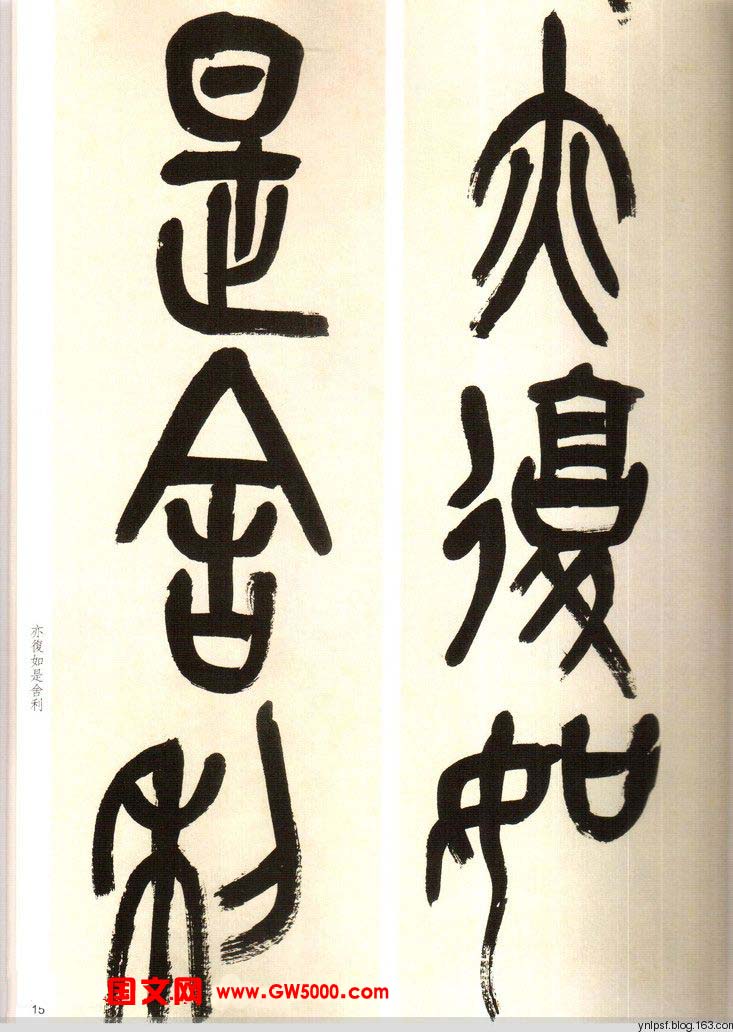 亦復如
是舍利
亦復如是舍利
15
国文网 www.GW5000.com
ynlpsf.blog.163.com